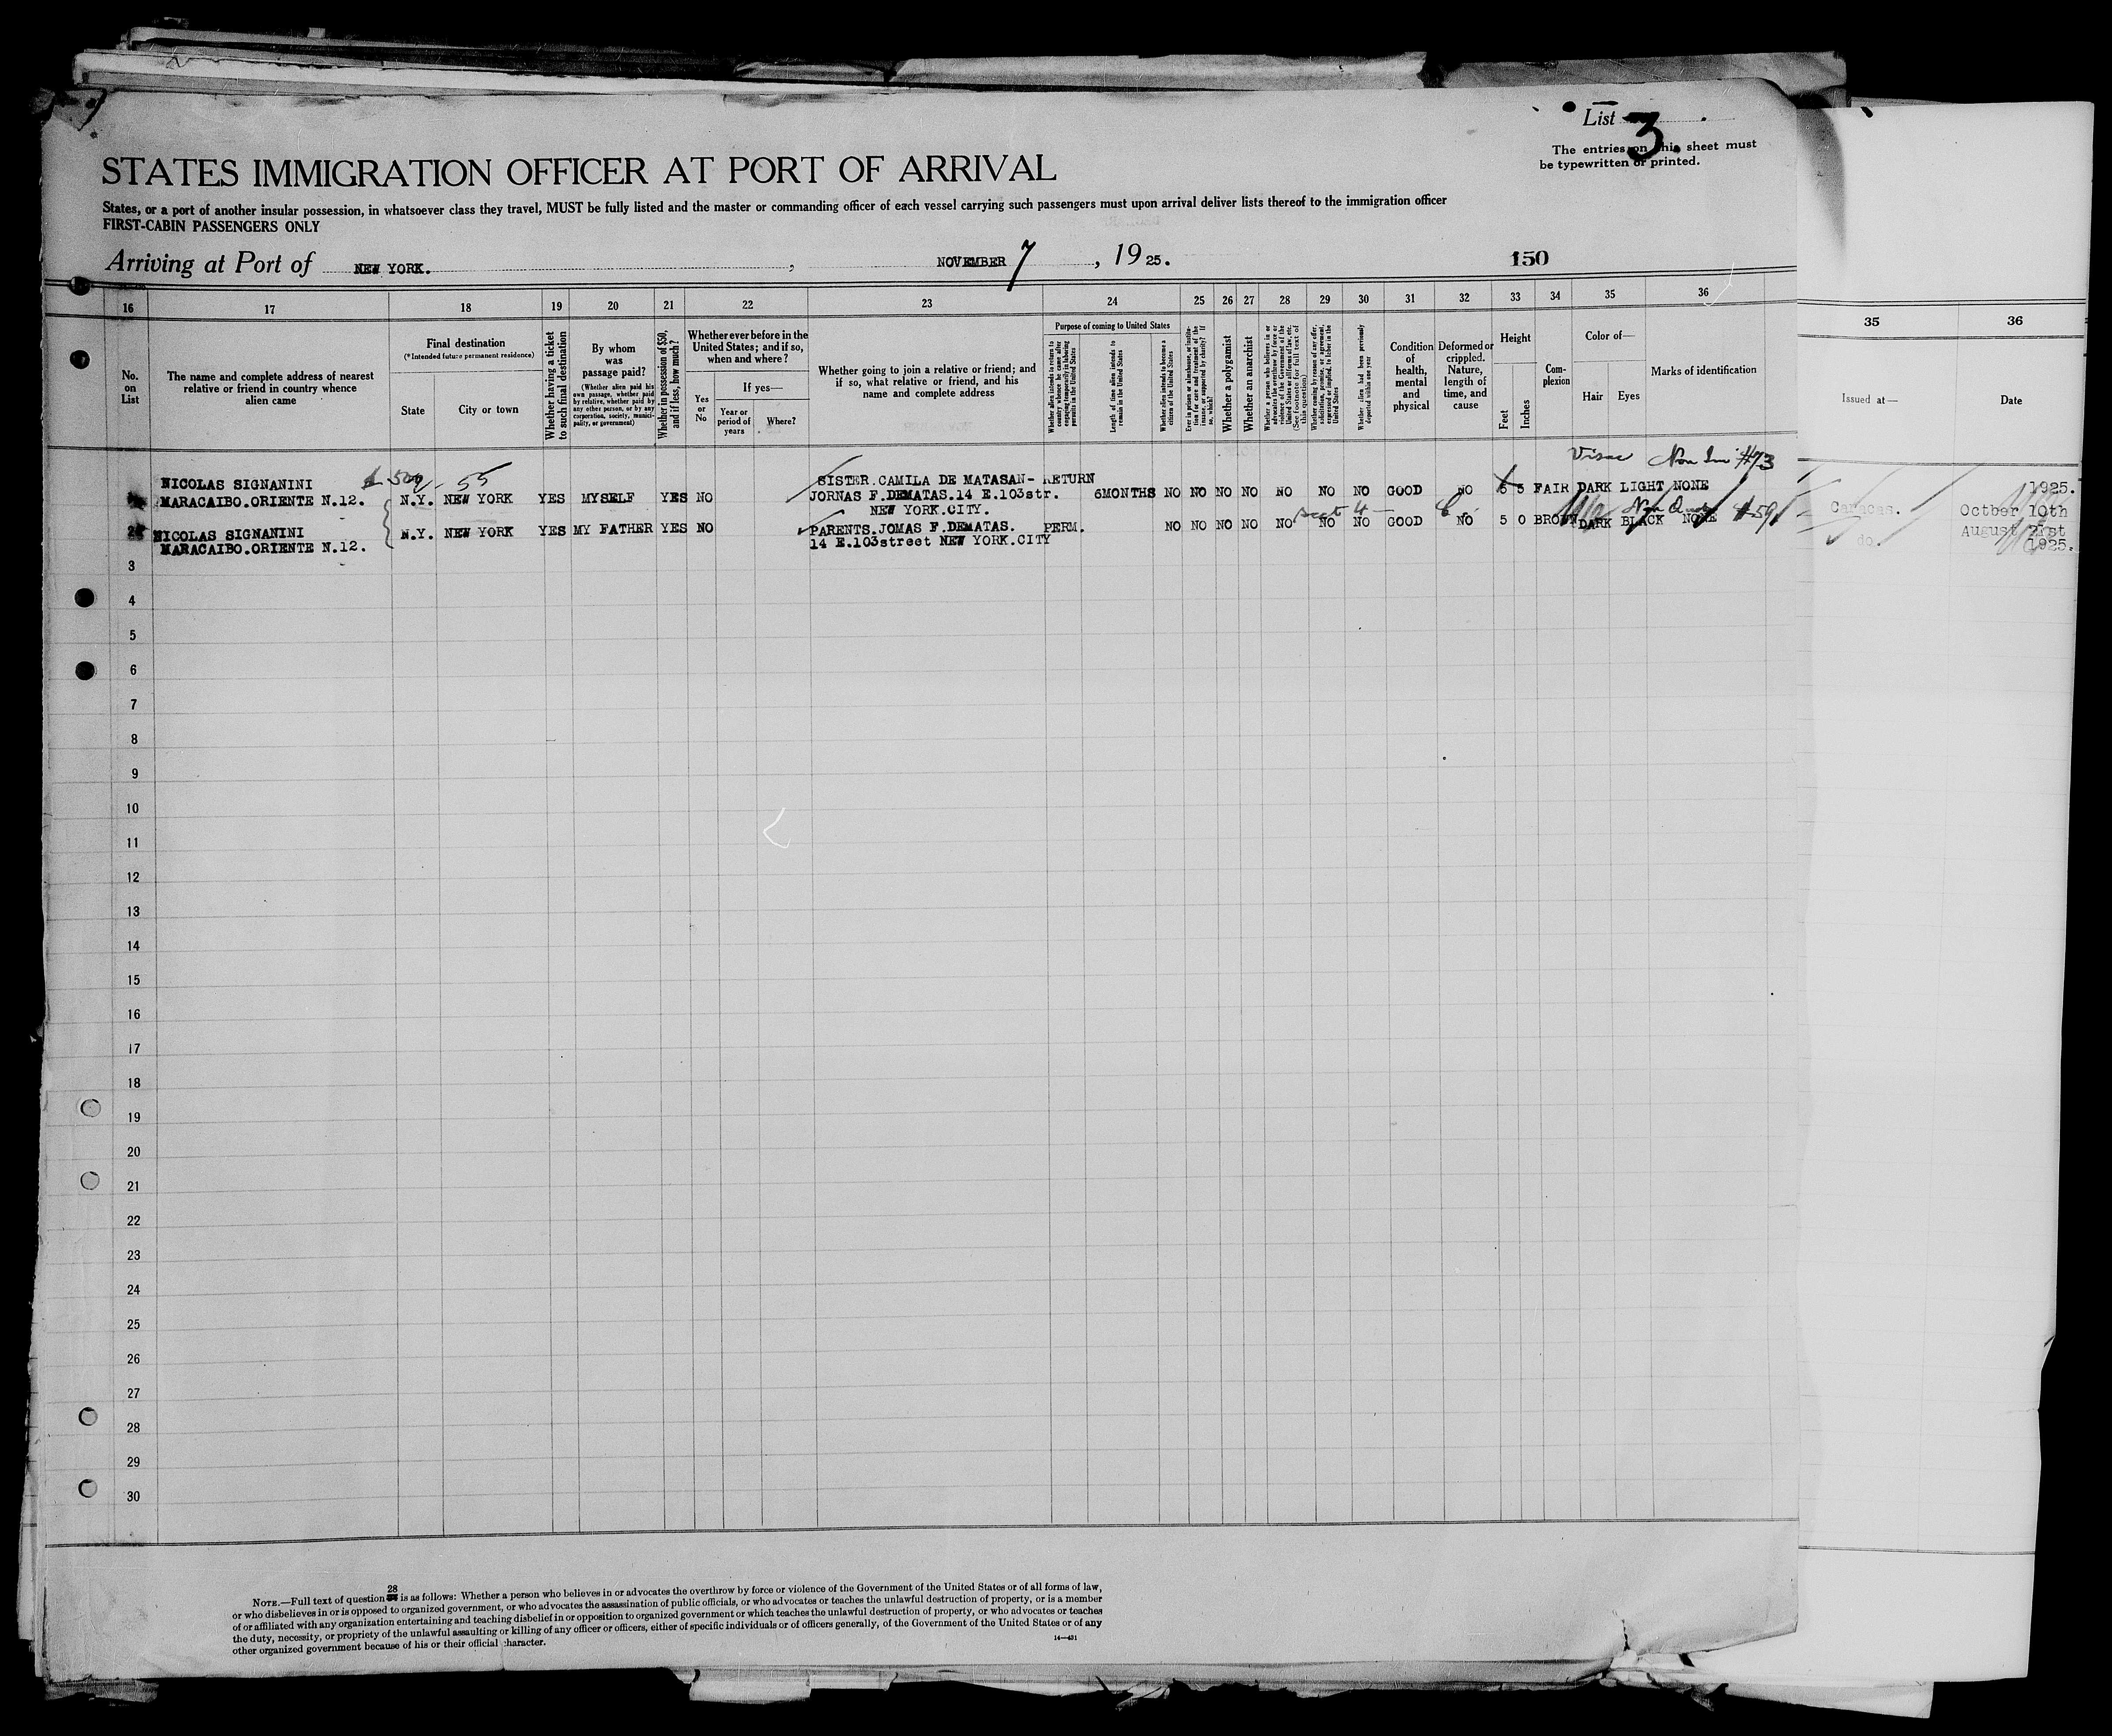 List 3
The entries on this sheet must
be typewritten or printed.
STATES IMMIGRATION OFFICER AT PORT OF ARRIVAL
States, or a port of another insular possession, in whatsoever class they travel, MUST be fully listed and the master or commanding officer of each vessel carrying such passengers must upon arrival deliver lists thereof to the immigration officer
FIRST-CABIN PASSENGERS ONLY
Arriving at Port of NEW YORK. , NOVEMBER 7 , 1925.
150
16 17 18 19 20 21 22 23 24 25 26 27 28 29 30 31 32 33 34 35 36
No.
on
List
The name and complete address of nearest
relative or friend in country whence
alien came
Final destination
(*Intended future permanent residence)
State
City or town
Whether having a ticket
to such final destination
By whom
was
passage paid?
(Whether alien paid his
own passage, whether paid
by relative, whether paid by
any other person, or by any
corporation, society, munici-
pality, or government)
Whether in possession of $50,
and if less, how much?
Whether ever before in the
United States; and if so,
when and where?
Yes
or
No
If yes—
Year or
period of
years
Where?
Whether going to join a relative or friend; and
if so, what relative or friend, and his
name and complete address
Purpose of coming to United States
Whether alien intends to return to
country whence he came after
engaging temporarily in laboring
pursuits in the United States
Length of time alien intends to
remain in the United States
Whether alien intends to become a
citizen of the United States
Ever in prison or almshouse, or institu-
tion for care and treatment of the
insane, or supported by charity? If
so, which?
Whether a polygamist
Whether an anarchist
Whether a person who believes in or
advocates the overthrow by force or
violence of the Government of the
United States or all forms of law, etc.
(See footnote for full text of
this question)
Whether coming by reason of any offer,
solicitation, promise, or agreement,
expressed or implied, to labor in the
United States
Whether alien had been previously
deported within one year
Condition
of
health,
mental
and
physical
Deformed or
crippled.
Nature,
length of
time, and
cause
Height
Feet
Inches
Com-
plexion
Color of—
Hair
Eyes
Marks of identification
35 36
Issued at—
Date
Visae Non Im #73
NICOLAS SIGNANINI
MARACAIBO.ORIENTE N.12.
55
N.Y. NEW YORK YES MYSELF YES NO
SISTER.CAMILA DE MATASAN- RETURN
JORNAS F.DEMATAS.14 E.103str.
NEW YORK.CITY.
6MONTHS NO NO NO NO NO NO NO GOOD NO 5 5 FAIR DARK LIGHT NONE
1925.
Caracas.
October 10th
sect 4 –
NICOLAS SIGNANINI
MARACAIBO.ORIENTE N.12.
N.Y. NEW YORK YES MY FATHER YES NO
PARENTS.JOMAS F.DEMATAS.
14 E.103street NEW YORK.CITY
PERM. NO NO NO NO NO NO NO GOOD NO 5 0 BROWN DARK BLACK NONE
do.
August 21st
1925.
3
4
5
6
7
8
9
10
11
12
13
14
15
16
17
18
19
20
21
22
23
24
25
26
27
28
29
30
28
NOTE.—Full text of question is as follows: Whether a person who believes in or advocates the overthrow by force or violence of the Government of the United States or of all forms of law,
or who disbelieves in or is opposed to organized government, or who advocates the assassination of public officials, or who advocates or teaches the unlawful destruction of property, or is a member
of or affiliated with any organization entertaining and teaching disbelief in or opposition to organized government or which teaches the unlawful destruction of property, or who advocates or teaches
the duty, necessity, or propriety of the unlawful assaulting or killing of any officer or officers, either of specific individuals or of officers generally, of the Government of the United States or of any
other organized government because of his or their official character.
14—431